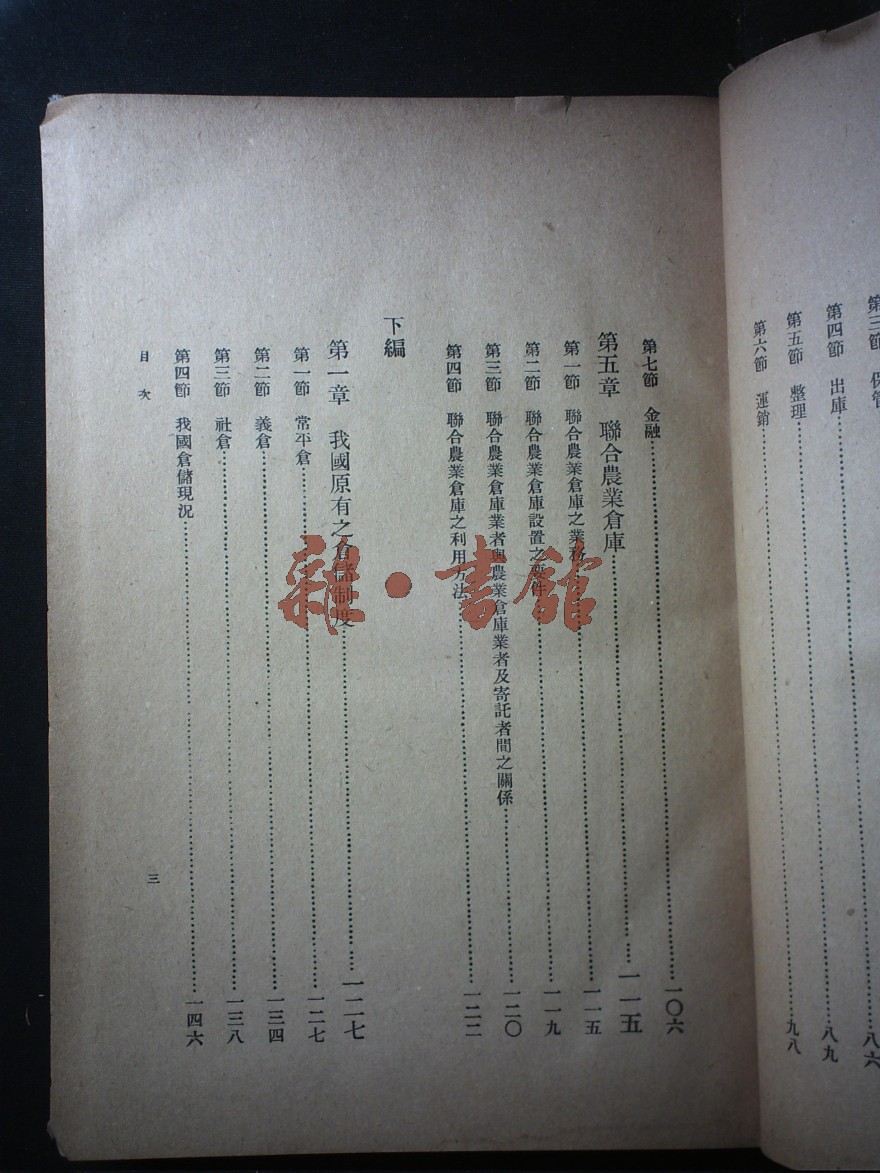 第三節　保管……八六
第四節　出庫……八九
第五節　整理
第六節　運銷……九八
第七節　金融……一〇六
第五章　聯合農業倉庫……一一五
第一節　聯合農業倉庫之業務……一一五
第二節　聯合農業倉庫設置之要件……一一九
第三節　聯合農業倉庫業者與農業倉庫業者及寄託者間之關係……一二〇
第四節　聯合農業倉庫之利用方法……一二二
下編
第一章　我國原有之倉儲制度……一二七
第一節　常平倉……一二七
第二節　義倉……一三四
第三節　社倉……一三八
第四節　我國倉儲現况……一四六
目次
三
雜·書館